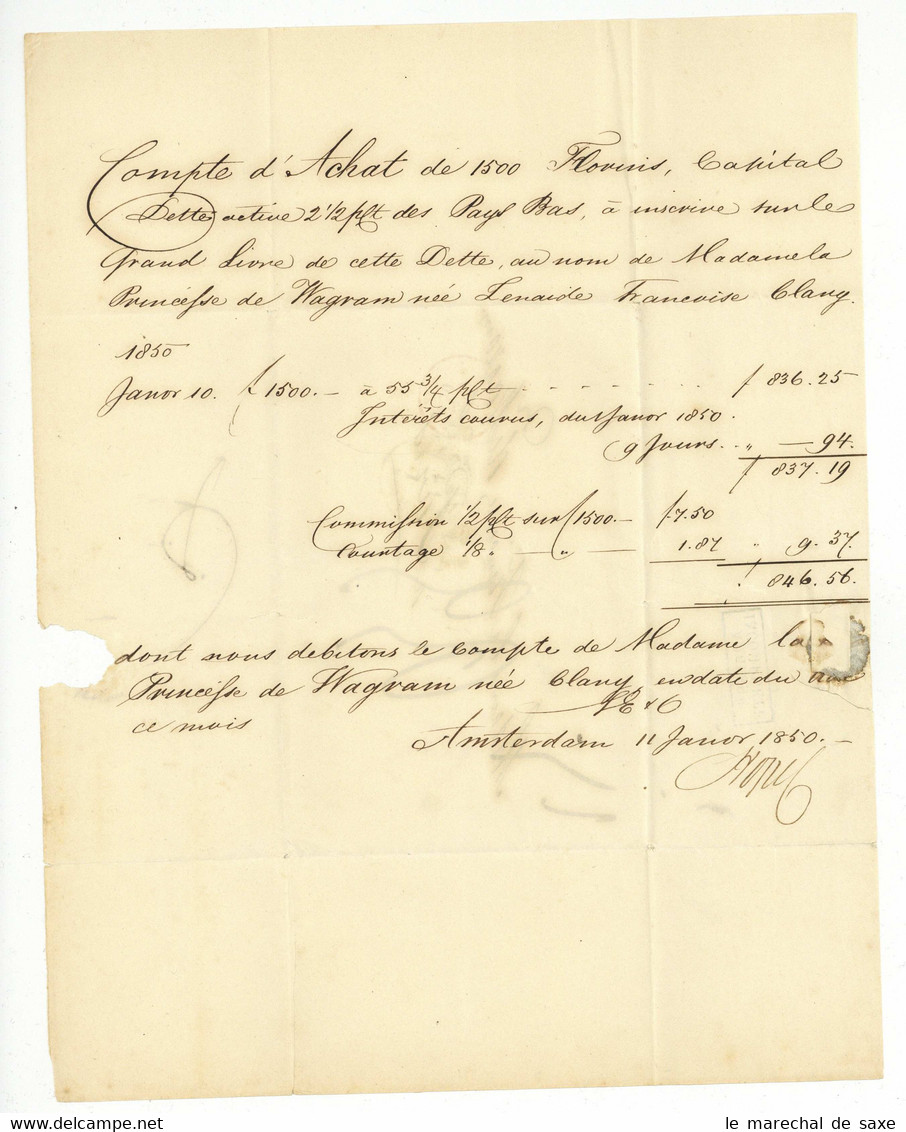 Compte d'Achat de 1500 Florins, Capital
Dette active 2 1/2 pCt des Pays Bas, à inscrire sur le
Grand Livre de cette Dette, au nom de Madame la
Princesse de Wagram née Zenaide Francoise Clary.
1850
Janvr 10. f 1500.— à 55 3/4 pCt - - - - - - - f 836.25
Interêts courus, du 1 Janvr 1850.
9 Jours. - - „ — 94.
f 837.19
Commission 1/2 pCt sur f 1500.— f 7.50
Courtage 1/8 „ — „ — 1.87 „ 9.37.
f 846.56.
dont nous debitons le Compte de Madame la
Princesse de Wagram née Clary, en date du
ce mois S E & O
Amsterdam 11 Janvr 1850.—
Hope C
le marechal de saxe